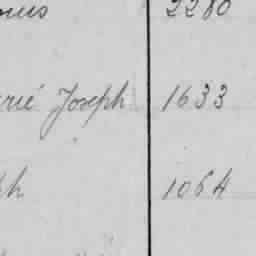 2280
rié Joseph 1633
ph 1064